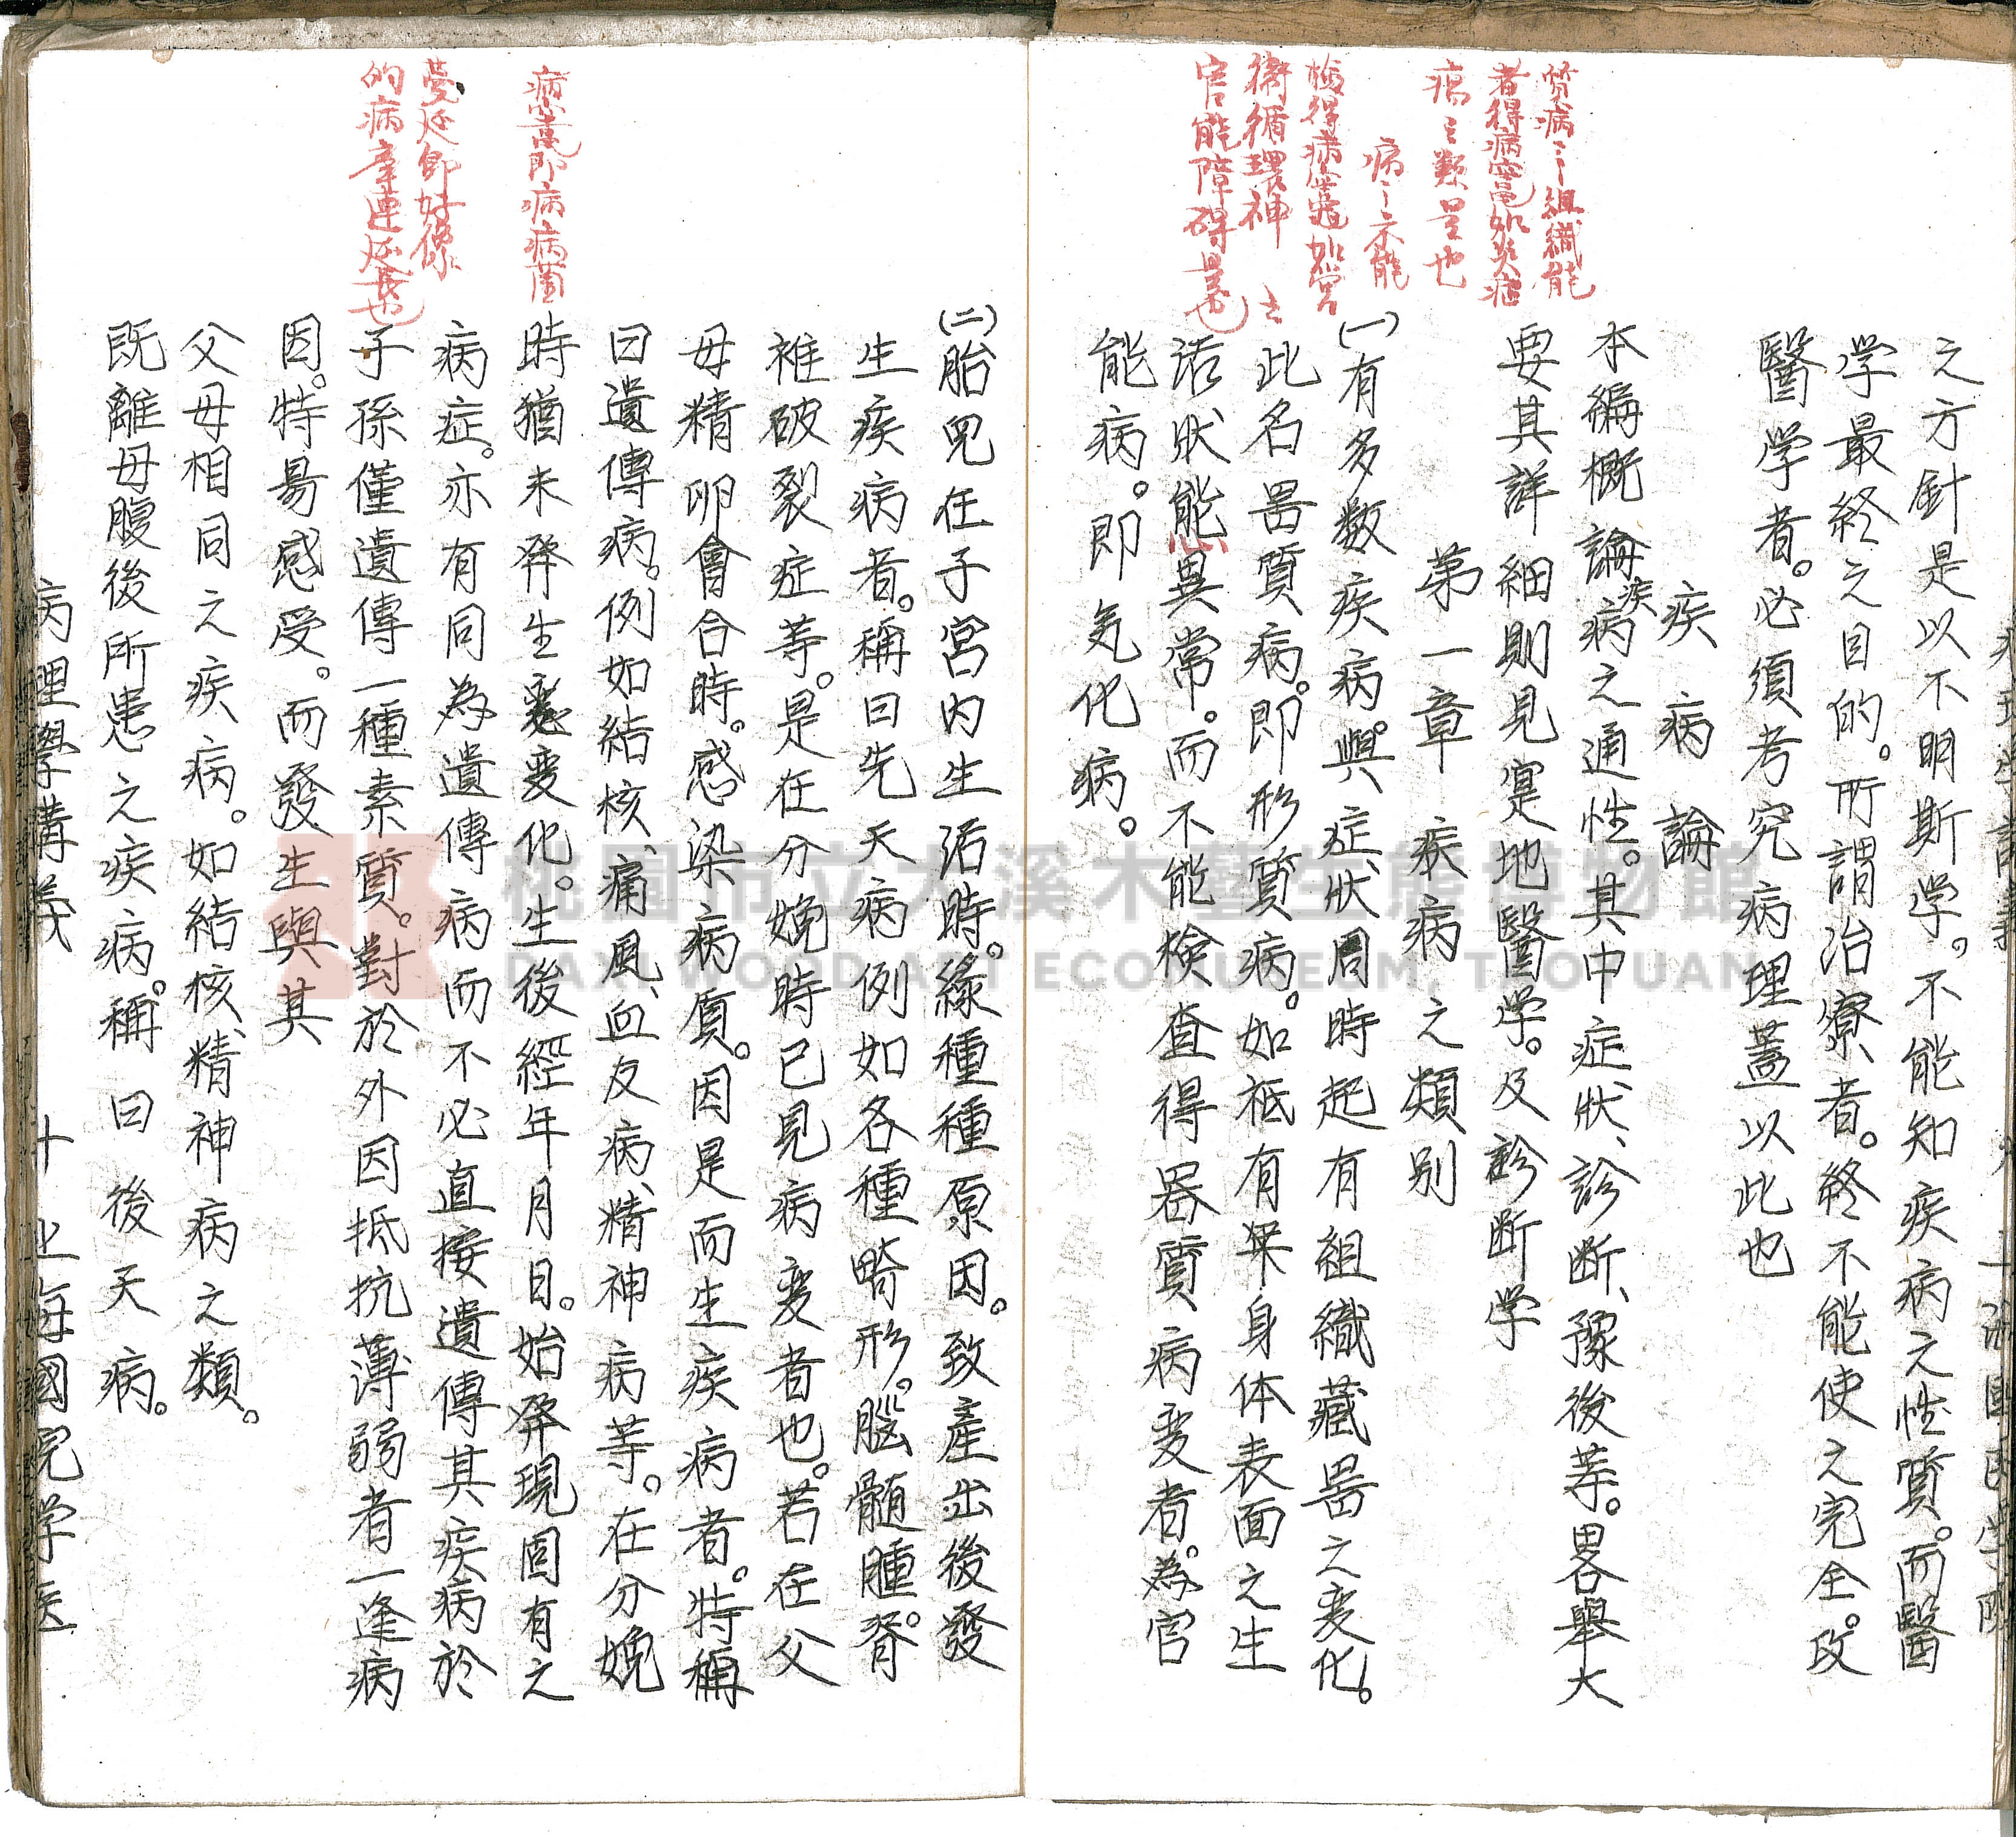 之方針是以不明斯学。不能知疾病之性質。而醫
学最終之目的。所謂治療者。終不能使之完全。攻
醫学者。必須考究病理蓋以此也
疾病論
本編概論疾病之通性。其中症狀、診断、豫後等。畧舉大
要其詳細則見寔地醫学。及診断学
第一章 疾病之類別
(一)有多数疾病。與症狀同時起有組織藏器之变化。
此名器質病。即形質病。如衹有果身体表面之生
活狀態異常。而不能検查得器質病变者。為官
能病。即気化病。
質病之組織能
者得病竈如炎症
瘍之類是也
病之不能
檢得病竈如営
衛循環神
官能障碍是也
(二)胎児在子宮内生活時。緣種種原因。致產出後發
生疾病者。稱曰先天病例如各種畸形。腦髓腫。脊
椎破裂症等。是在分娩時已見病变者也。若在父
母精卵會合時。感染病原。因是而生疾病者。特稱
曰遺傳病。例如結核、痛風、血友病、精神病等。在分娩
時猶未発生变化。生後經年月日。始発現固有之
病症。亦有同為遺傳病而不必直接遺傳其疾病於
子孫僅遺傳一種素質。對於外因抵抗薄弱者一逢病
因。特易感受。而發生與其
父母相同之疾病。如結核、精神病之類。
既離母腹後所患之疾病。稱曰後天病。
病竈即病病菌
蔓延即好像
的病牽連延長也
病理學講義 十 上海國兒学医
桃園市立大溪木藝生態博物館
DAXI WOOD ART ECOMUSEUM, TAOYUAN